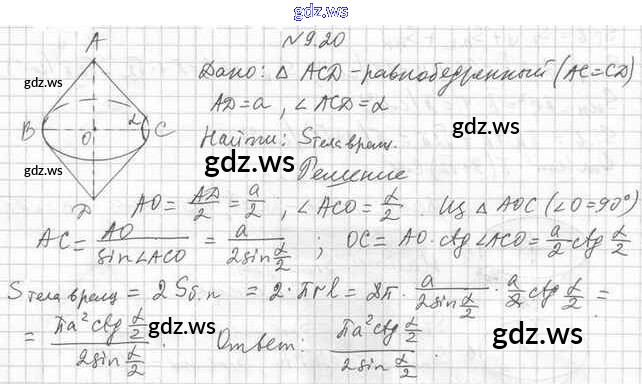 gdz.ws
№9.20
A
Дано: △ ACD - равнобедренный (AC=CD)
gdz.ws
AD=a, ∠ACD=α
gdz.ws
B O α C
Найти: Sтела вращ.
gdz.ws
gdz.ws
Решение
D
AO = AD/2 = a/2 ; ∠ACO = α/2. Из △ AOC (∠O=90°)
AC = AO/sin∠ACO = a/2sin α/2 ; OC = AO·ctg∠ACO = a/2 ctg α/2
Sтела вращ = 2Sб.п = 2·πrl = 2π · a/2sin α/2 · a/2 ctg α/2 =
= πa² ctg α/2 / 2sin α/2 . Ответ: πa² ctg α/2 / 2sin α/2 .
gdz.ws
gdz.ws